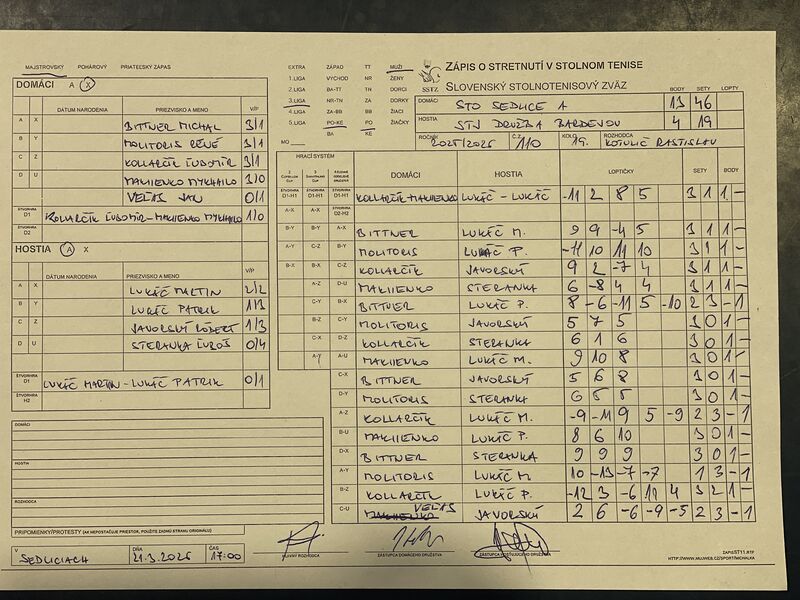 MAJSTROVSKÝ POHÁROVÝ PRIATEĽSKÝ ZÁPAS
DOMÁCI A X
DÁTUM NARODENIA PRIEZVISKO A MENO V/P
A X BITTNER MICHAL 3/1
B Y MOLITORIS RENÉ 3/1
C Z KOLLARČÍK ĽUBOMÍR 3/1
D U MAKIIENKO MYKHAILO 3/0
VEĽAS JÁN 0/1
ŠTVORHRA D1 KOLLARČÍK ĽUBOMÍR-MAKIIENKO MYKHAILO 1/0
ŠTVORHRA D2
HOSTIA A X
DÁTUM NARODENIA PRIEZVISKO A MENO V/P
A X LUKÁČ MARTIN 2/2
B Y LUKÁČ PATRIK 1/3
C Z JAVORSKÝ RÓBERT 1/3
D U STERANKA ĽUBOŠ 0/4
ŠTVORHRA D1 LUKÁČ MARTIN-LUKÁČ PATRIK 0/1
ŠTVORHRA H2
DOMÁCI
HOSTIA
ROZHODCA
PRIPOMIENKY/PROTESTY (AK NEPOSTAČUJE PRIESTOR, POUŽITE ZADNÚ STRANU ORIGINÁLU)
V SEDLICIACH DŇA 21.3.2026 ČAS 17:00
HLAVNÝ ROZHODCA ZÁSTUPCA DOMÁCEHO DRUŽSTVA ZÁSTUPCA HOSŤUJÚCEHO DRUŽSTVA
EXTRA ZÁPAD TT MUŽI
1.LIGA VÝCHOD NR ŽENY
2.LIGA BA-TT TN DORCI
3.LIGA NR-TN ZA DORKY
4.LIGA ZA-BB BB ŽIACI
5.LIGA PO-KE PO ŽIAČKY
BA KE
MO
SSTZ
ZÁPIS O STRETNUTÍ V STOLNOM TENISE
SLOVENSKÝ STOLNOTENISOVÝ ZVÄZ
BODY SETY LOPTY
DOMÁCI STO SEDLICE A 13 46
HOSTIA STJ DRUŽBA BARDEJOV 4 19
ROČNÍK 2025/2026 Č.Z. 110 KOLO 19. ROZHODCA KOTULIČ RASTISLAV
HRACÍ SYSTÉM
DOMÁCI HOSTIA LOPTIČKY SETY BODY
D1-H1 D1-H1 D1-H1 KOLLARČÍK-MAKIIENKO LUKÁČ - LUKÁČ -11 2 8 5 3 1 1 -
A-X A-X D2-H2
B-Y B-Y A-X BITTNER LUKÁČ M. 9 9 -4 5 3 1 1 -
A-Y C-Z B-Y MOLITORIS LUKÁČ P. -11 10 11 10 3 1 1 -
B-X B-X C-Z KOLLARČÍK JAVORSKÝ 9 2 -7 4 3 1 1 -
A-Z D-U MAKIIENKO STERANKA 6 -8 4 4 3 1 1 -
C-Y B-X BITTNER LUKÁČ P. 8 -6 -11 5 -10 2 3 - 1
B-Z C-Y MOLITORIS JAVORSKÝ 5 7 5 3 0 1 -
C-X D-Z KOLLARČÍK STERANKA 6 1 6 3 0 1 -
A-Y A-U MAKIIENKO LUKÁČ M. 9 10 8 3 0 1 -
C-X BITTNER JAVORSKÝ 5 6 8 3 0 1 -
D-Y MOLITORIS STERANKA 6 5 5 3 0 1 -
A-Z KOLLARČÍK LUKÁČ M. -9 -11 9 5 -9 2 3 - 1
B-U MAKIIENKO LUKÁČ P. 8 6 10 3 0 1 -
D-X BITTNER STERANKA 9 9 9 3 0 1 -
A-Y MOLITORIS LUKÁČ M 10 -13 -7 -7 1 3 - 1
B-Z KOLLARČÍK LUKÁČ P. -12 3 -6 10 4 3 2 1 -
C-U MAKIIENKO VEĽAS JAVORSKÝ 2 6 -6 -9 -5 2 3 - 1
ZAPISST11.RTF
HTTP://WWW.MUJWEB.CZ/SPORT/MICHALKA